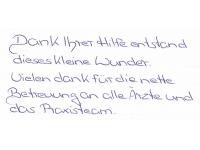 Dank Ihrer Hilfe entstand
dieses kleine Wunder.
Vielen dank für die nette
Betreuung an alle Ärzte und
das Praxisteam.